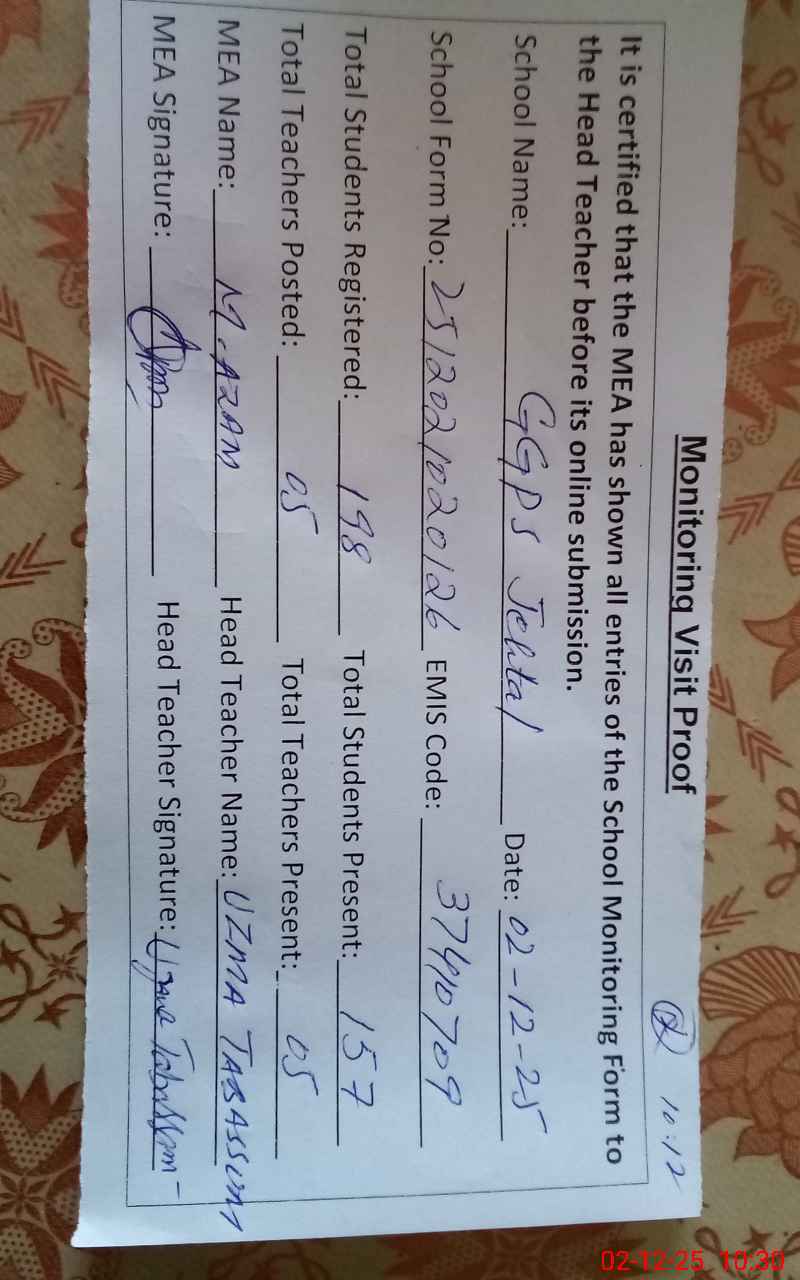 ② 10:12
Monitoring Visit Proof
It is certified that the MEA has shown all entries of the School Monitoring Form to
the Head Teacher before its online submission.
School Name: GGPS Jehtal Date: 02-12-25
School Form No: 251202102020126 EMIS Code: 37410709
Total Students Registered: 198 Total Students Present: 157
Total Teachers Posted: 05 Total Teachers Present: 05
MEA Name: M. AZAM Head Teacher Name: UZMA TABASSUM
MEA Signature: Head Teacher Signature: Uzma Tabassum
02-12-25 10:30